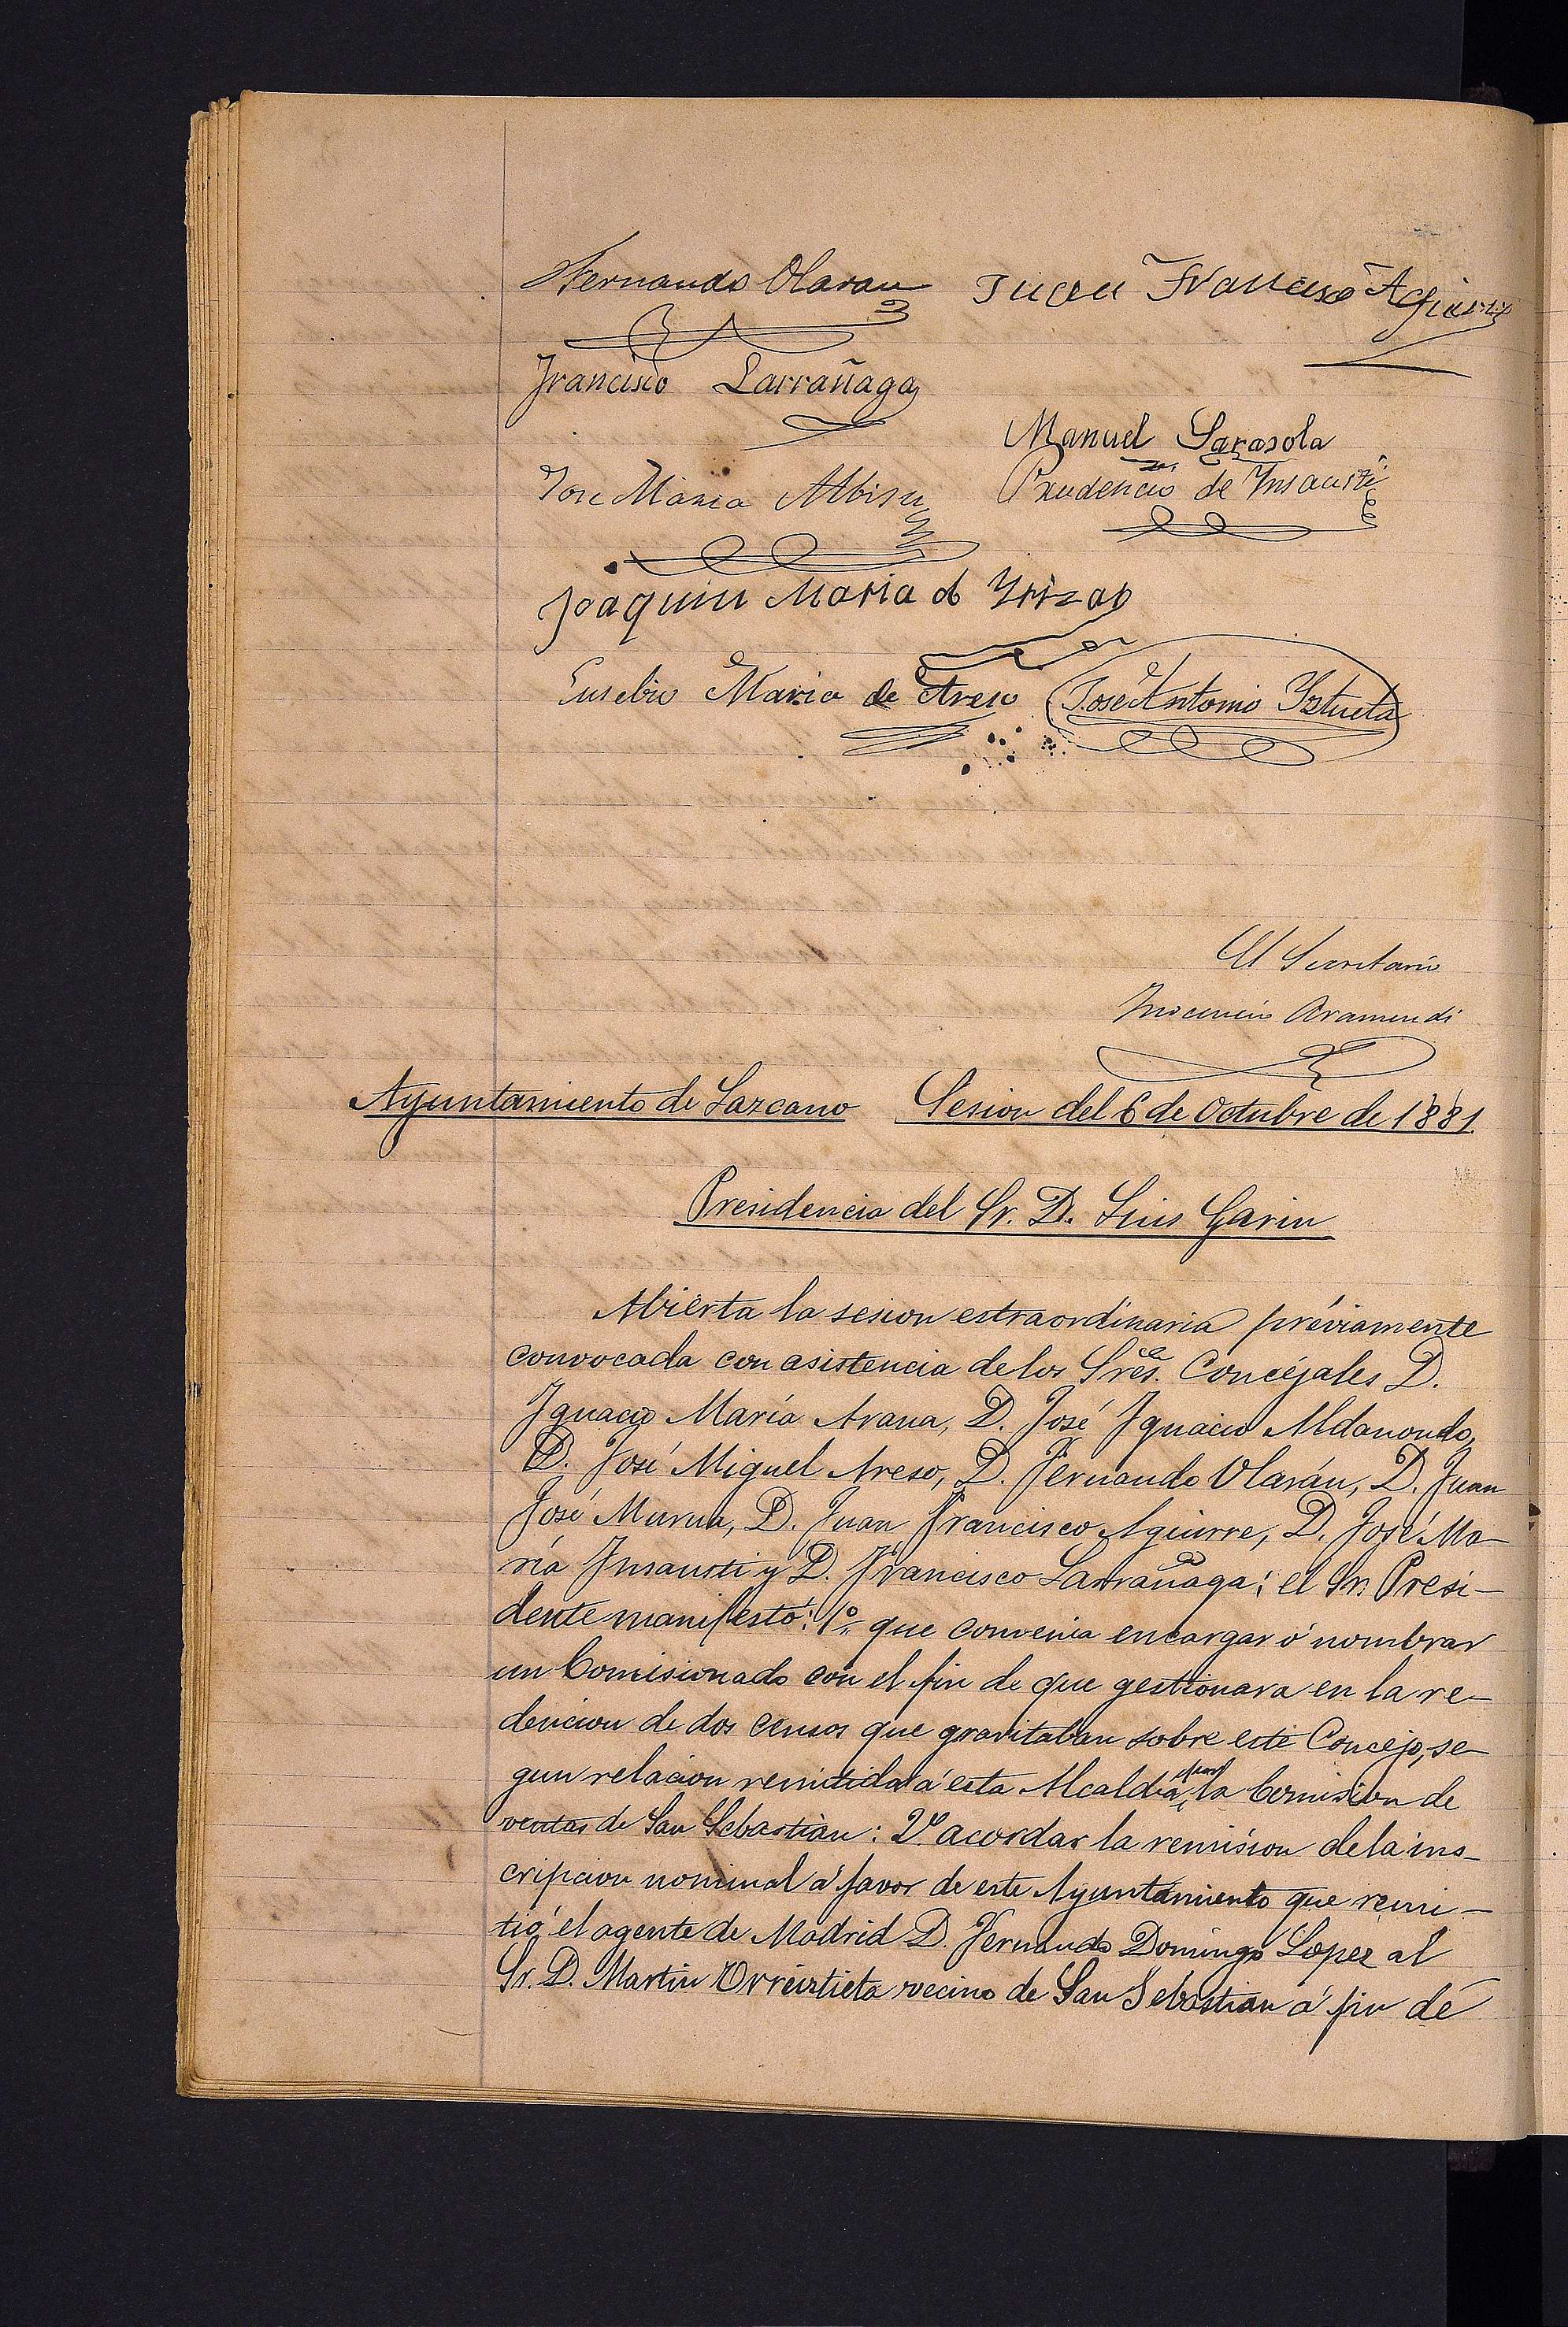 Fernando Olaran Juan Francisco Agirre
Francisco Larrañaga
Manuel Sarasola
Jose Maria Albisu Prudencio de Insausti
Joaquin Maria d Yrizar
Eusebio Maria de Areso Jose Antonio Yztueta
El Secretario
Inocencio Aramendi
Ayuntamiento de Lazcano Sesion del 6 de Octubre de 1881.
Presidencia del Sr. D. Luis Garin
Abierta la sesion estraordinaria préviamente
convocada con asistencia de los Sres. Concejales D.
Ignacio María Arana, D. José Ignacio Aldanondo,
D. José Miguel Areso, D. Fernando Olarán, D. Juan
José Murua, D. Juan Francisco Aguirre, D. José Ma-
ría Insausti y D. Francisco Larrañaga; el Sr. Presi-
dente manifestó: 1º que convenia encargar ó nombrar
un Comisionado con el fin de que gestionara en la re-
dencion de dos censos que gravitaban sobre este Concejo, se-
gun relacion remitida á esta Alcaldía por la Comision de
ventas de San Sebastian: 2º acordar la remision de la ins-
cripcion nominal á favor de este Ayuntamiento que remi-
tió el agente de Madrid D. Fernando Domingo Lopez al
Sr. D. Martin Orreiztieta vecino de San Sebastian á fin de